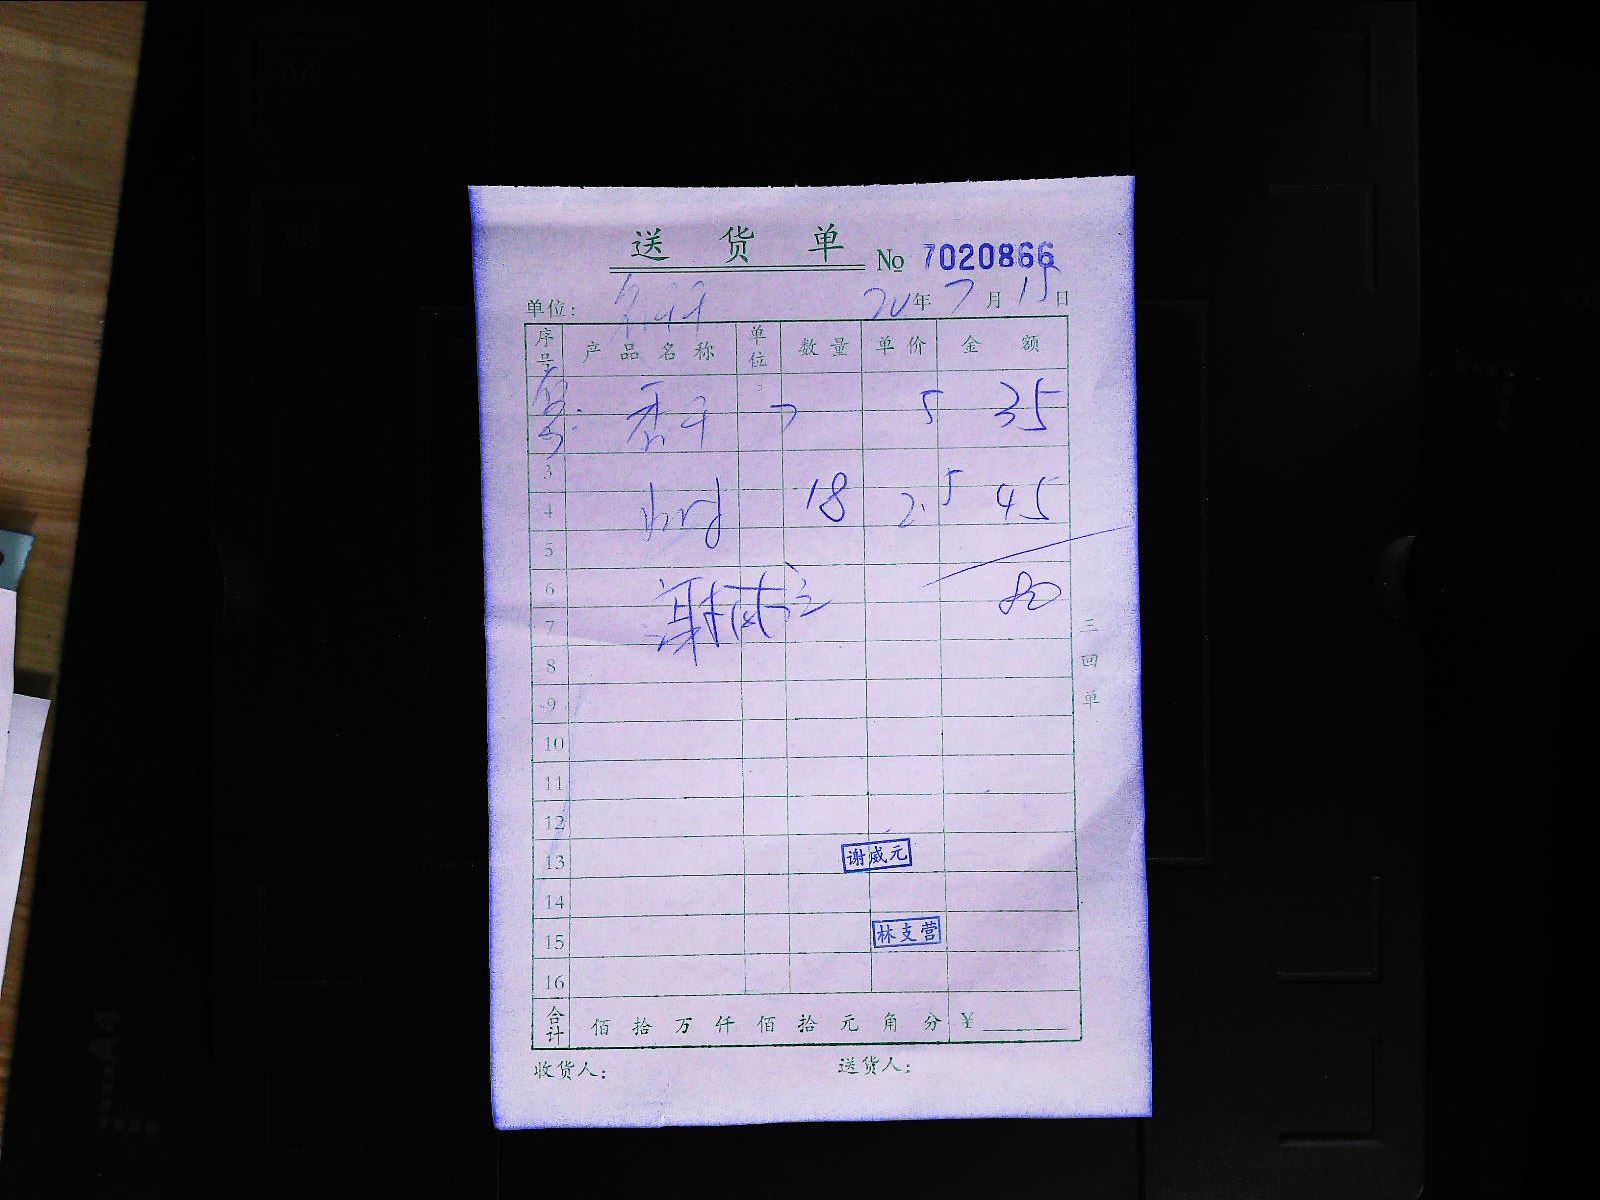 送货单 No 7020866
单位: 20年7月15日
序号 产品名称 单位 数量 单价 金额
香干 7 5 35
3
4 18 2.5 45
5
6 80
谢威元
7
8
9
10
11
12
13 谢威元
14
15 林支营
16
合计 佰拾万仟佰拾元角分 ¥
收货人: 送货人:
三回单